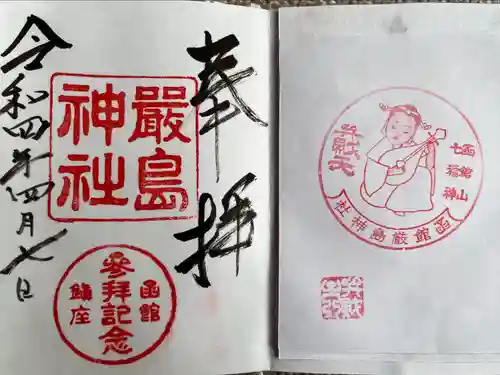 奉拝
嚴島
神社
函館
參拜記念
鎮座
令和四年四月七日
函館山
七福神
弁財天
函館厳島神社